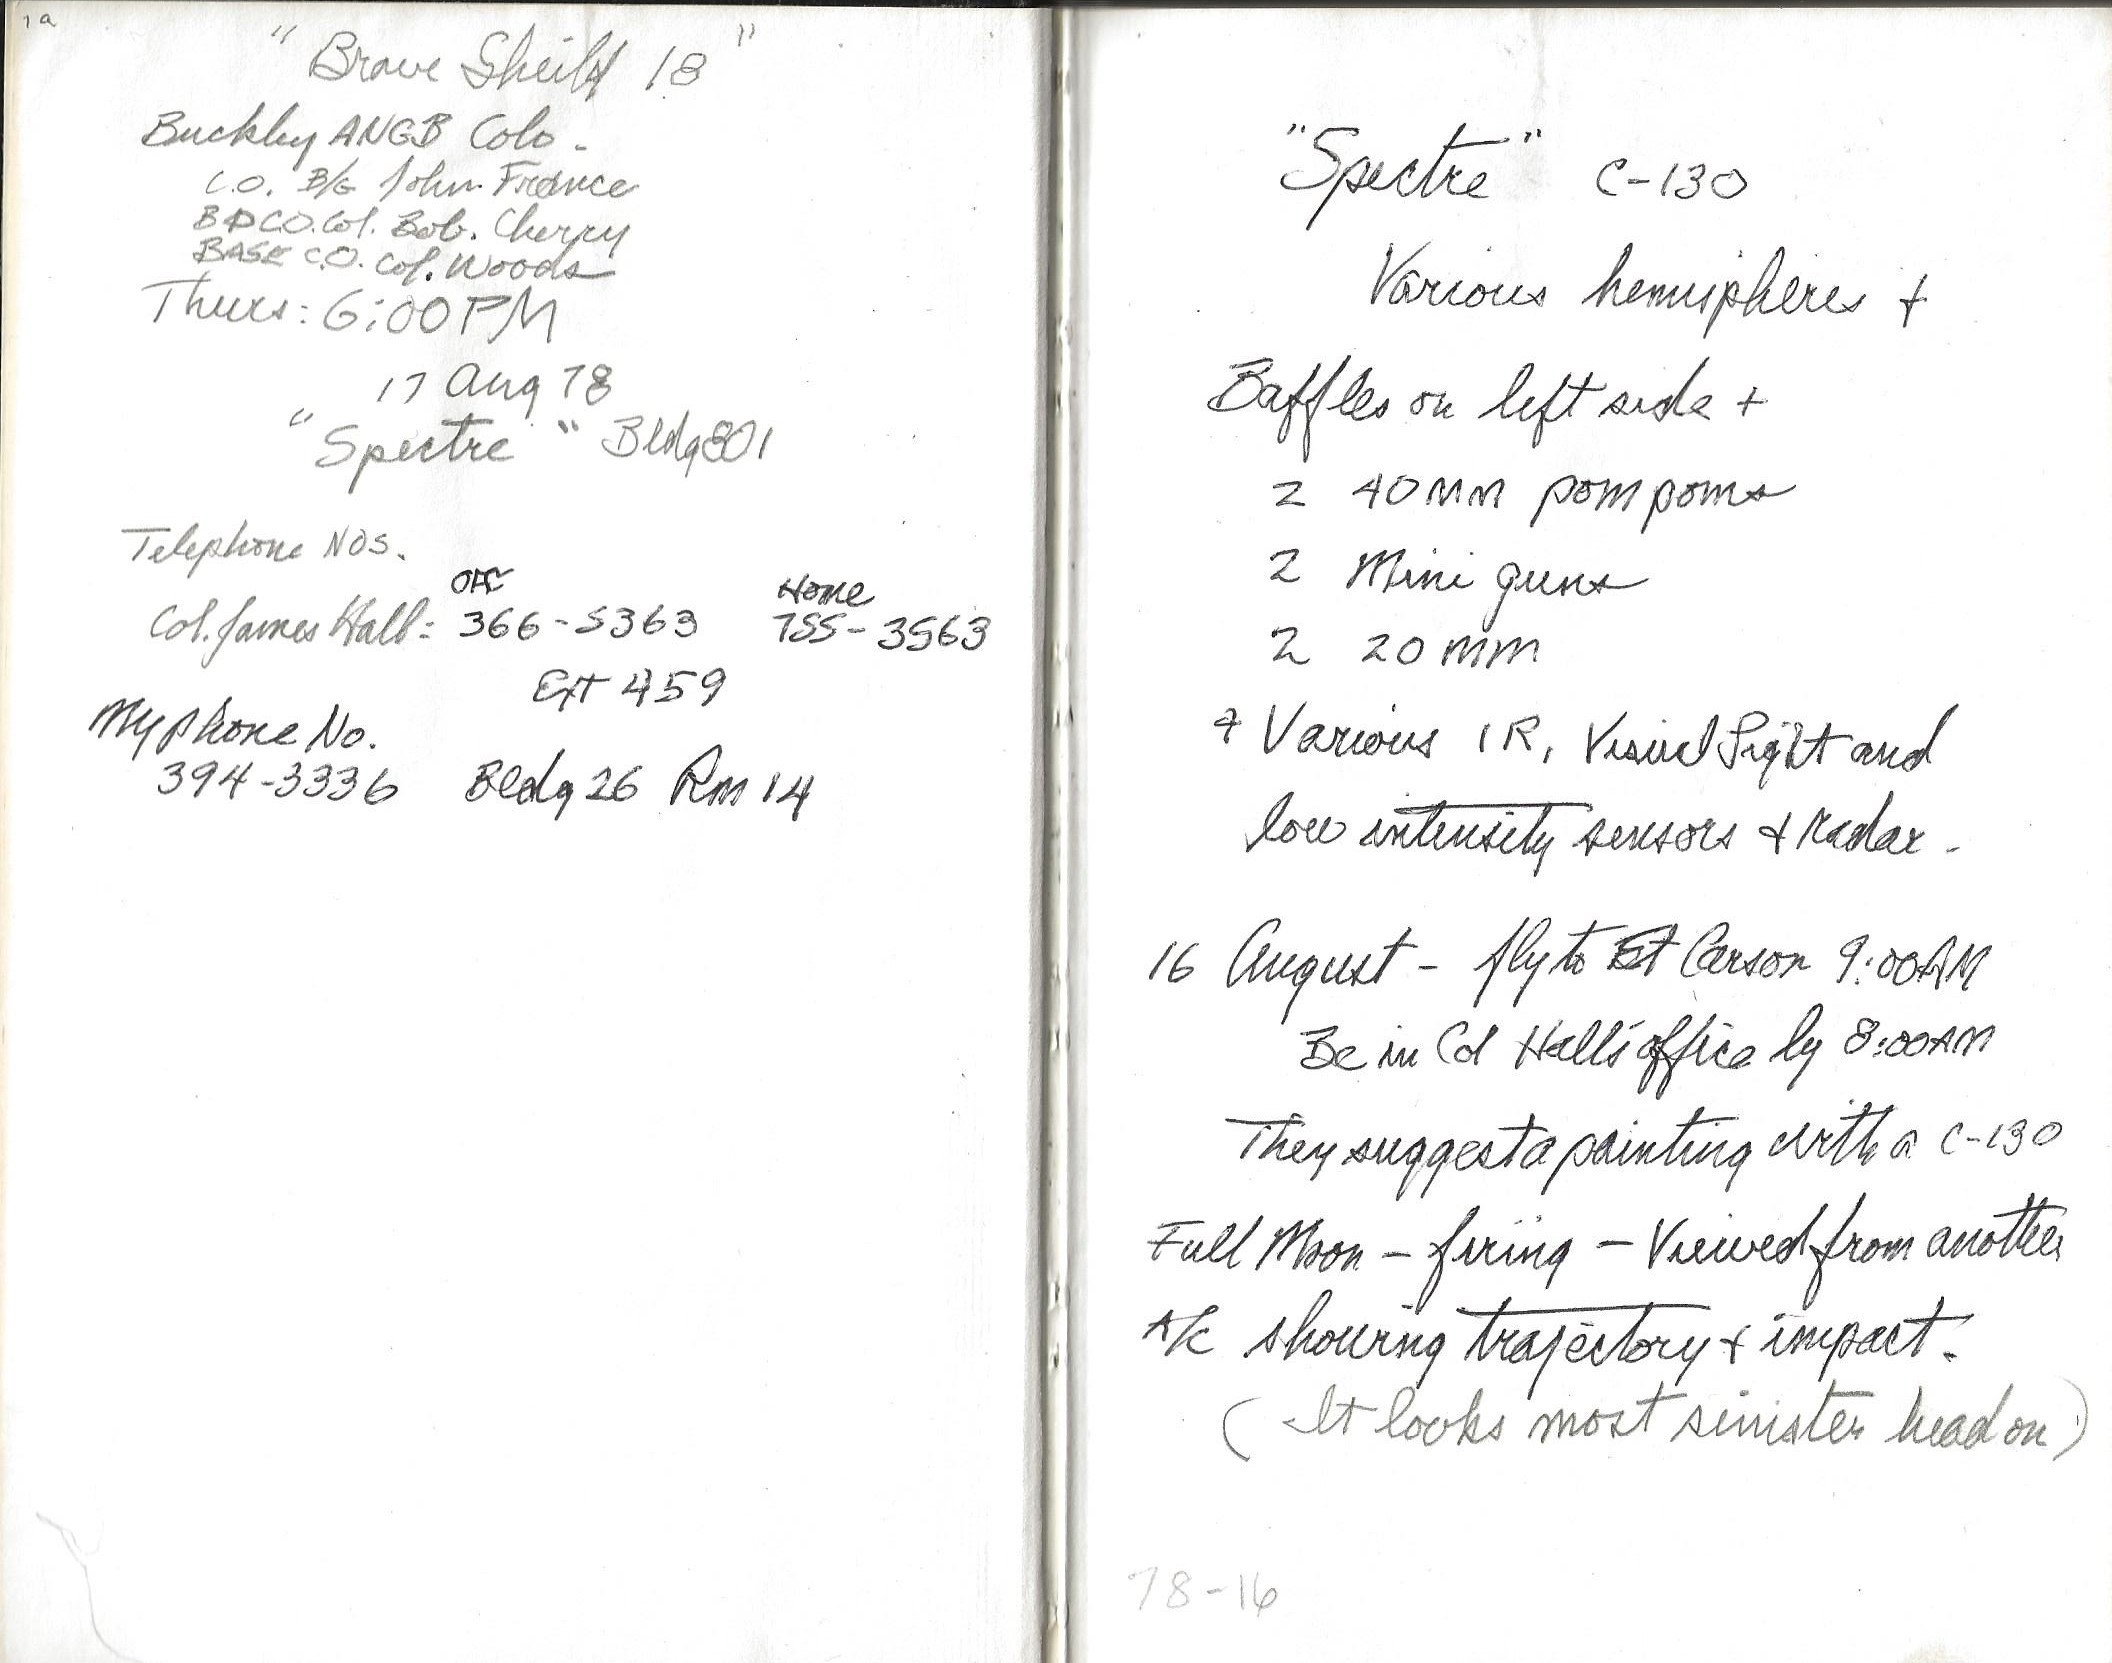 1a
" Brave Sheild 18 "
Buckley ANGB Colo -
C.O. B/G John France
BDCO. Col. Bob. Cherry
BASE C.O. Col. Woods
Thurs: 6:00 PM
17 Aug 78
"Spectre" Bldg 801
Telephone NOS.
OFC Home
Col. James Hall: 366-5363 755-3563
Ext 459
My phone No.
394-3336 Bldg 26 Rm 14
"Spectre" C-130
Various hemispheres +
Baffles on left side +
2 40 mm pom poms
2 Mini guns
2 20 mm
+ Various IR, Visual Sight and
low intensity sensors + radar -
16 August - fly to Ft Carson 9:00 AM
Be in Col Hall's office by 8:00 AM
They suggest a painting with a C-130
Full Moon - firing - Viewed from another
A/C showing trajectory + impact.
(It looks most sinister head on)
78-16